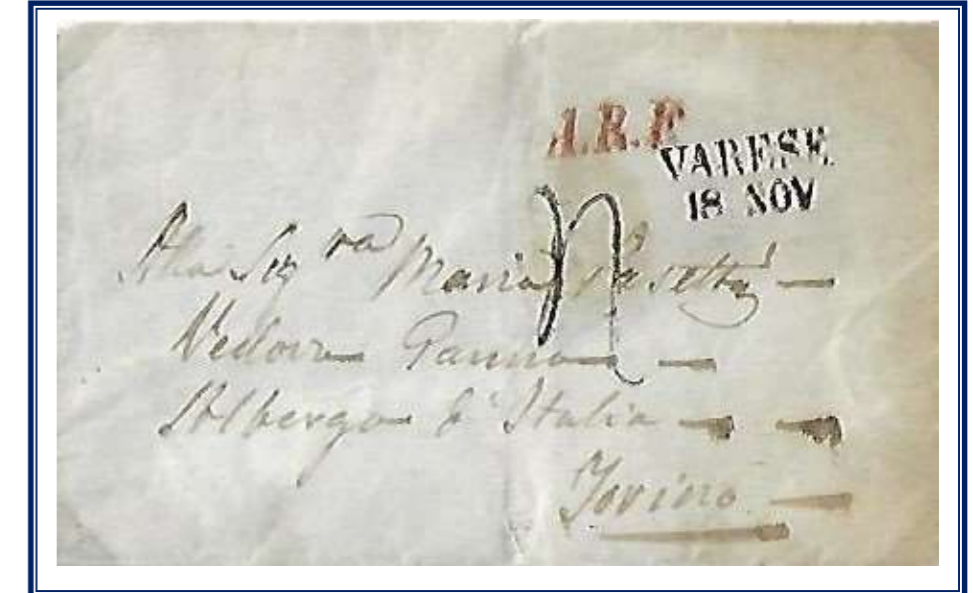 A.R.F
VARESE
18 NOV
Alla Sig ra Maria
Vedova
Albergo d'Italia
Torino